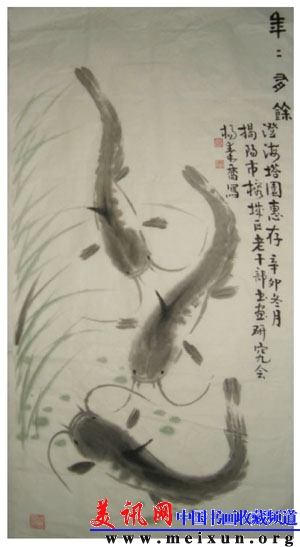 年〻多餘
澄海塔園惠存 辛卯冬月
揭陽市榕城区老干部書画研究会
楊
寫
美讯网
中国书画收藏频道
www.meixun.org